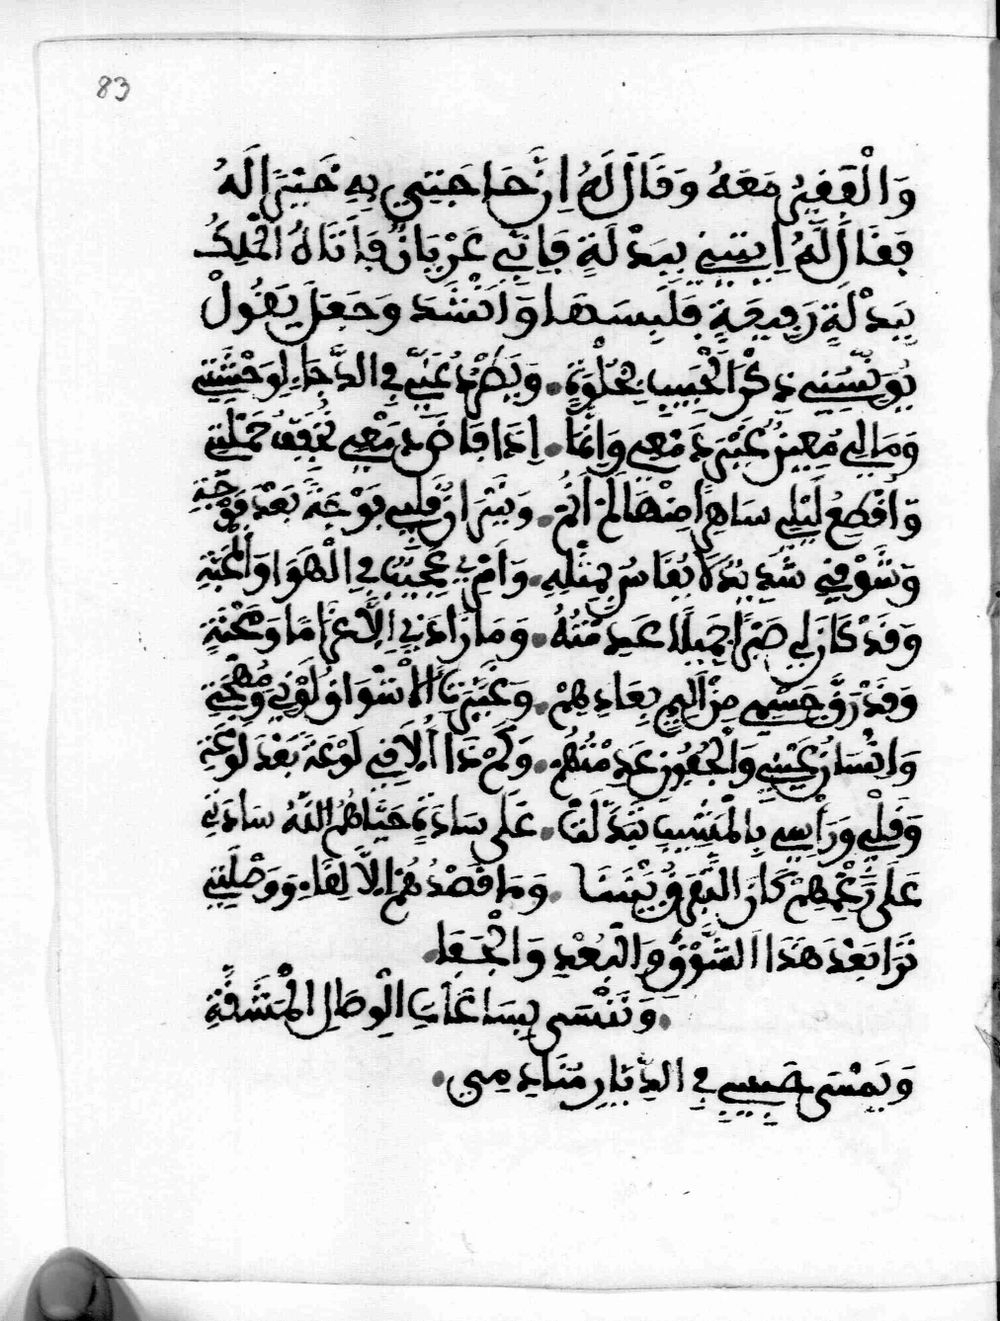 83
وَالْفَقِيرُ مَعَهُ وَقَالَ لَهُ اِنَّ حَاجَتِي بِهِ خَيْرًا لَهُ
فَقَالَ لَهُ اِيتِينِي بِبَدْلَةٍ فَاِنِّي عَرْيَانٌ فَاَتَاهُ الْمَلِكُ
بِبَدْلَةٍ رَفِيعَةٍ فَلَبِسَهَا وَاَنْشَدَ وَجَعَلَ يَقُولْ
يُوَنِّسُنِي ذِكْرُ الْحَبِيبِ بِخُلْوَةٍ. وَيَطْرُدُ عَنِّي فِي الدُّجَاءِ لِوَحْشَتِي
وَمَا لِي مُعِينٌ غَيْرَ دَمْعِي وَاِنَّمَا. اِذَا فَاضَ دَمْعِي يُخَفِّفُ حُمْلَتِي
وَاَقْطَعُ لَيْلِي سَاهِرًا ضِنْهَا لَمْ اَنُمْ. وَنِيْرَانُ قَلْبِي فَوْجَةً بَعْدَ فَوْجَةِ
وَشَوْقِي شَدِيدٌ لَا يُقَاسُ بِمِثْلِهِ. وَاَمْرِي عَجِيبٌ فِي الْهَوَا وَالْمَحَبَّةِ
وَقَدْ كَانَ لِي صَبْرًا جَمِيلًا عَدِمْتُهُ. وَمَا زَادَنِي اِلَّا غَرَامًا وَمَحْنَةٍ
وَقَدْ رَقَّ جِسْمِي مِنْ اَلِيمِ بِعَادِهِمْ. وَغَيَّرَتِ الْاَشْوَاقُ لَوْنِي وَمُهْجَتِي
وَاِنْسَانُ عَيْنِي وَالْجُفُونِ عَدِمْتُهُمْ. وَكَمْ ذَا اُلَاقِي لَوْعَةً بَعْدَ لَوْعَةِ
وَقَلْبِي وَرَأْسِي بِالْمَشِيبِ تَبَدَّلَتْ. عَلَى سَادَةٍ حَيَّاهُمُ اللّٰهُ سَادَتِي
عَلَى رَغْمِهِمْ كَانَ التَّفَرُّقُ بَيْنَنَا. وَمَا قَصْدُهُمْ اِلَّا لِقَاءِ وَوَصْلَتِي
تَرَا بَعْدَ هَذَا الشَّوْقِ وَالْبُعْدِ وَالْجَفَا.
. وَنَنْسَى بِسَاعَاتِ الْوِصَالِ الْمَشَقَّةِ
وَيَمْسَى حَبِيبِي فِي الدِّيَارِ مُنَادِمِي.